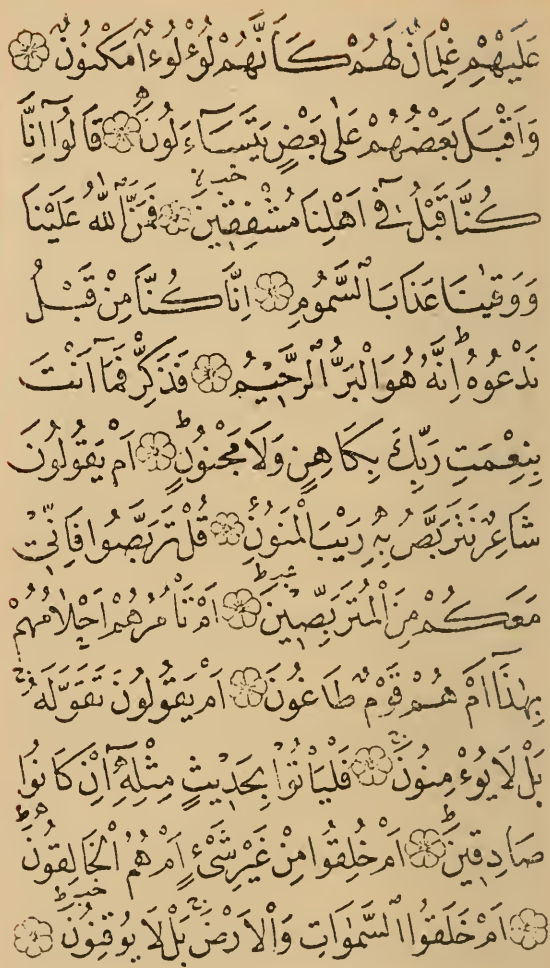 عَلَيْهِمْ غِلْمَانٌ لَهُمْ كَاَنَّهُمْ لُوْلُوءٌ مَكْنُونٌ ۝
وَاَقْبَلَ بَعْضُهُمْ عَلٰى بَعْضٍ يَتَسَآءَلُونَ ۝ قَالُوٓا اِنَّا
كُنَّا قَبْلُ فِٓى اَهْلِنَا مُشْفِقِينَ ۝ فَمَنَّ اللّٰهُ عَلَيْنَا
وَوَقٰينَا عَذَابَ السَّمُومِ ۝ اِنَّا كُنَّا مِنْ قَبْلُ
نَدْعُوهُ ط اِنَّهُ هُوَ الْبَرُّ الرَّحِيْمُ ۝ فَذَكِّرْ فَمَآ اَنْتَ
بِنِعْمَتِ رَبِّكَ بِكَاهِنٍ وَلَا مَجْنُونٍ ط ۝ اَمْ يَقُولُونَ
شَاعِرٌ نَتَرَبَّصُ بِهٖ رَيْبَ الْمَنُونِ ۝ قُلْ تَرَبَّصُوا فَاِنِّىْ
مَعَكُمْ مِنَ الْمُتَرَبِّصِيْنَ ط ۝ اَمْ تَاْمُرُهُمْ اَحْلَامُهُمْ
بِهٰذَآ اَمْ هُمْ قَوْمٌ طَاغُونَ ۝ اَمْ يَقُولُونَ تَقَوَّلَهُ ج
بَلْ لَا يُوءْمِنُونَ ج ۝ فَلْيَاْتُوا بِحَدِيْثٍ مِثْلِهٖٓ اِنْ كَانُوا
صَادِقِيْنَ ط ۝ اَمْ خُلِقُوا مِنْ غَيْرِ شَىْءٍ اَمْ هُمُ الْخَالِقُونَ ط
۝ اَمْ خَلَقُوا السَّمٰوَاتِ وَالْاَرْضَ ج بَلْ لَا يُوقِنُونَ ط ۝